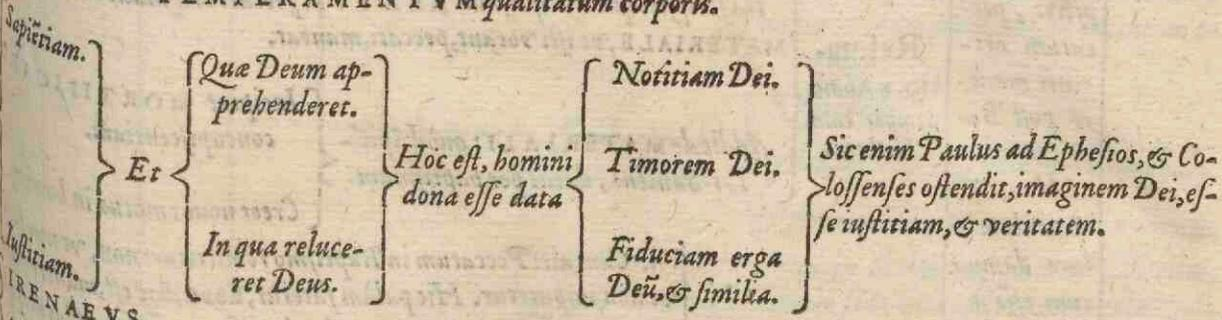 TEMPERAMENTVM qualitatum corporis.
Sapiẽtiam.
Iustitiam.
Et
Quæ Deum ap-
prehenderet.
In qua reluce-
ret Deus.
Hoc est, homini
dona esse data
Notitiam Dei.
Timorem Dei.
Fiduciam erga
Deũ, & similia.
Sic enim Paulus ad Ephesios, & Co-
lossenses ostendit, imaginem Dei, es-
se iustitiam, & veritatem.
IRENAEVS